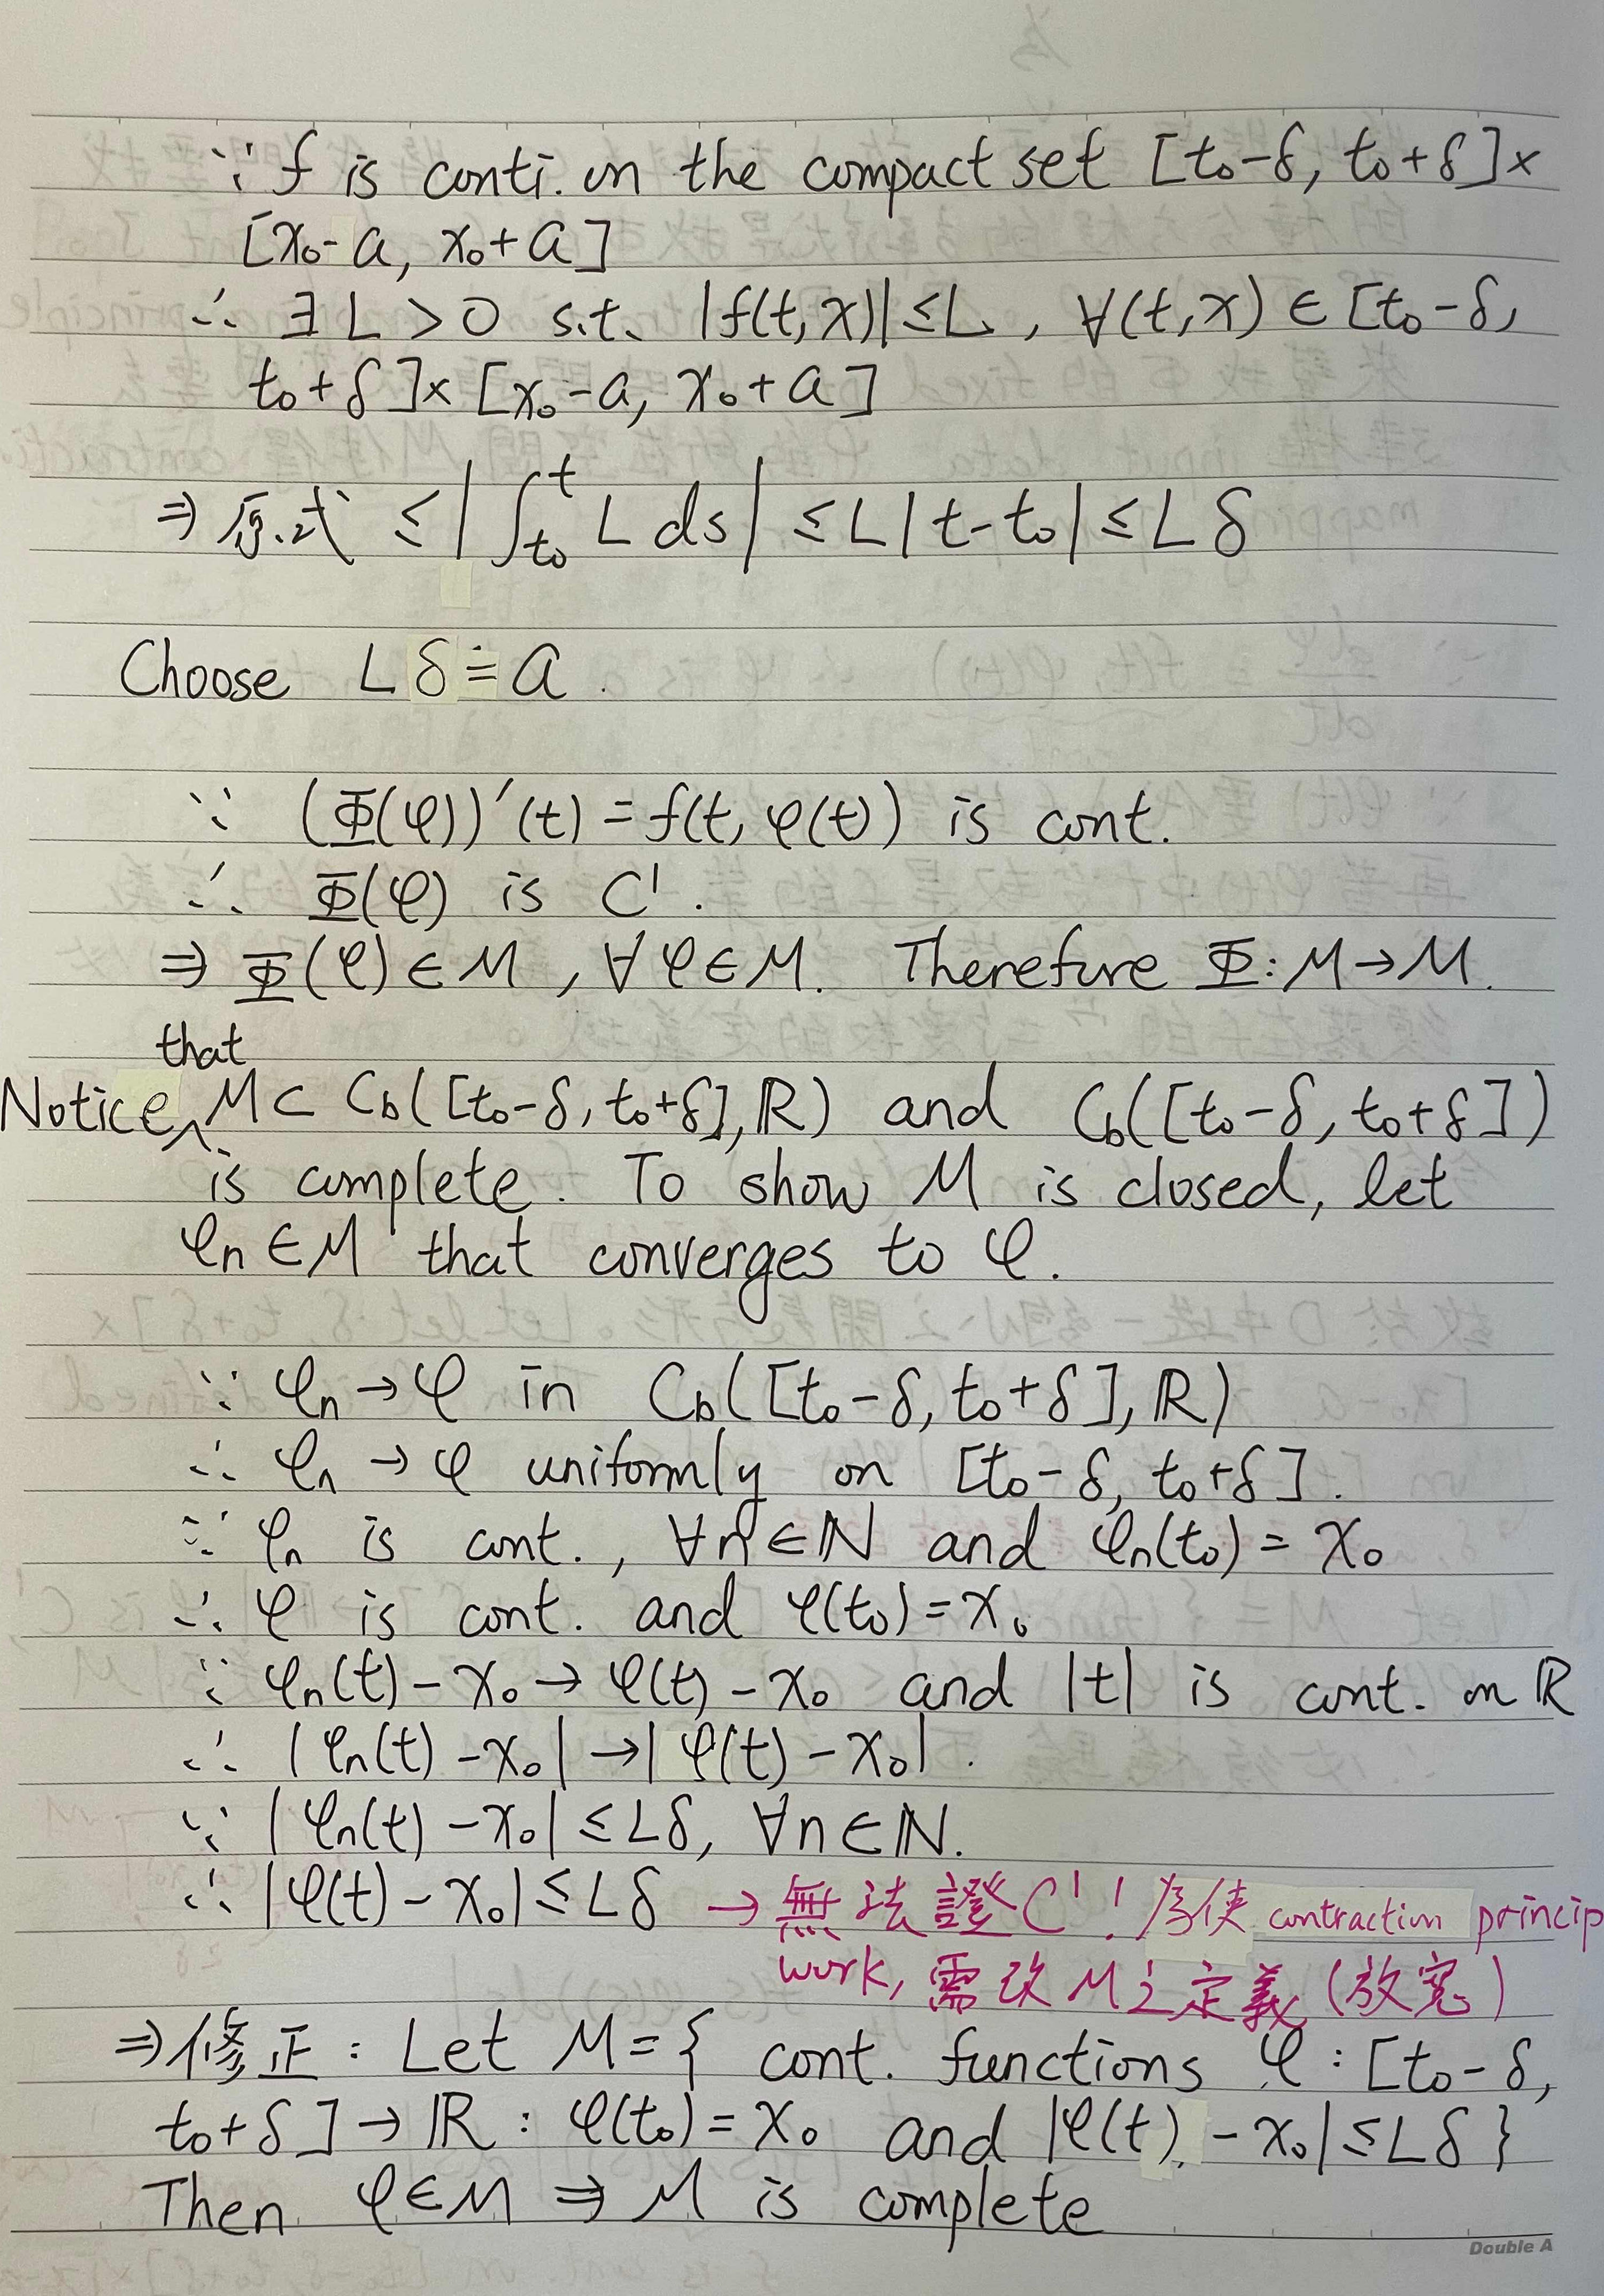 ∵ f is conti. on the compact set [t₀-δ, t₀+δ]×
[x₀-a, x₀+a]
∴ ∃ L > 0 s.t. |f(t,x)| ≤ L, ∀(t,x) ∈ [t₀-δ,
t₀+δ]×[x₀-a, x₀+a]
⇒ 原式 ≤ |∫_{t₀}^{t} L ds| ≤ L|t-t₀| ≤ Lδ
Choose Lδ ≐ a.
∵ (Φ(φ))'(t) = f(t, φ(t)) is cont.
∴ Φ(φ) is C¹.
⇒ Φ(φ) ∈ M, ∀φ ∈ M. Therefore Φ: M → M.
that
Notice ^ M ⊂ C_b([t₀-δ, t₀+δ], ℝ) and C_b([t₀-δ, t₀+δ])
is complete. To show M is closed, let
φₙ ∈ M that converges to φ.
∵ φₙ → φ in C_b([t₀-δ, t₀+δ], ℝ)
∴ φₙ → φ uniformly on [t₀-δ, t₀+δ].
∵ φₙ is cont., ∀n ∈ ℕ and φₙ(t₀) = x₀
∴ φ is cont. and φ(t₀) = x₀
∵ φₙ(t) - x₀ → φ(t) - x₀ and |t| is cont. on ℝ
∴ |φₙ(t) - x₀| → |φ(t) - x₀|.
∵ |φₙ(t) - x₀| ≤ Lδ, ∀n ∈ ℕ.
∴ |φ(t) - x₀| ≤ Lδ → 無法證C¹! 為使 contraction princip
work, 需改 M之定義 (放寬)
⇒ 修正: Let M = { cont. functions φ: [t₀-δ,
t₀+δ] → ℝ : φ(t₀) = x₀ and |φ(t) - x₀| ≤ Lδ }
Then φ ∈ M ⇒ M is complete
Double A